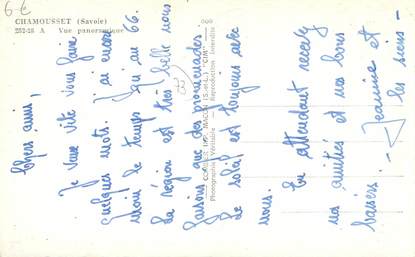 6 €
CHAMOUSSET (Savoie)
252-28 A Vue panoramique
Chers amis,
Je viens vite vous faire
quelques mots. J'ai encore
moins le temps qu'au 66.
La région est très belle nous
faisons que des promenades.
Le soleil est toujours avec
nous.
En attendant recevez
nos amitiés et nos bons
baisers. - Jeannine et
les siens -
COMBIER IMP. MACON (S.-et-L.) "CIM"
Photographie Véritable - Reproduction Interdite